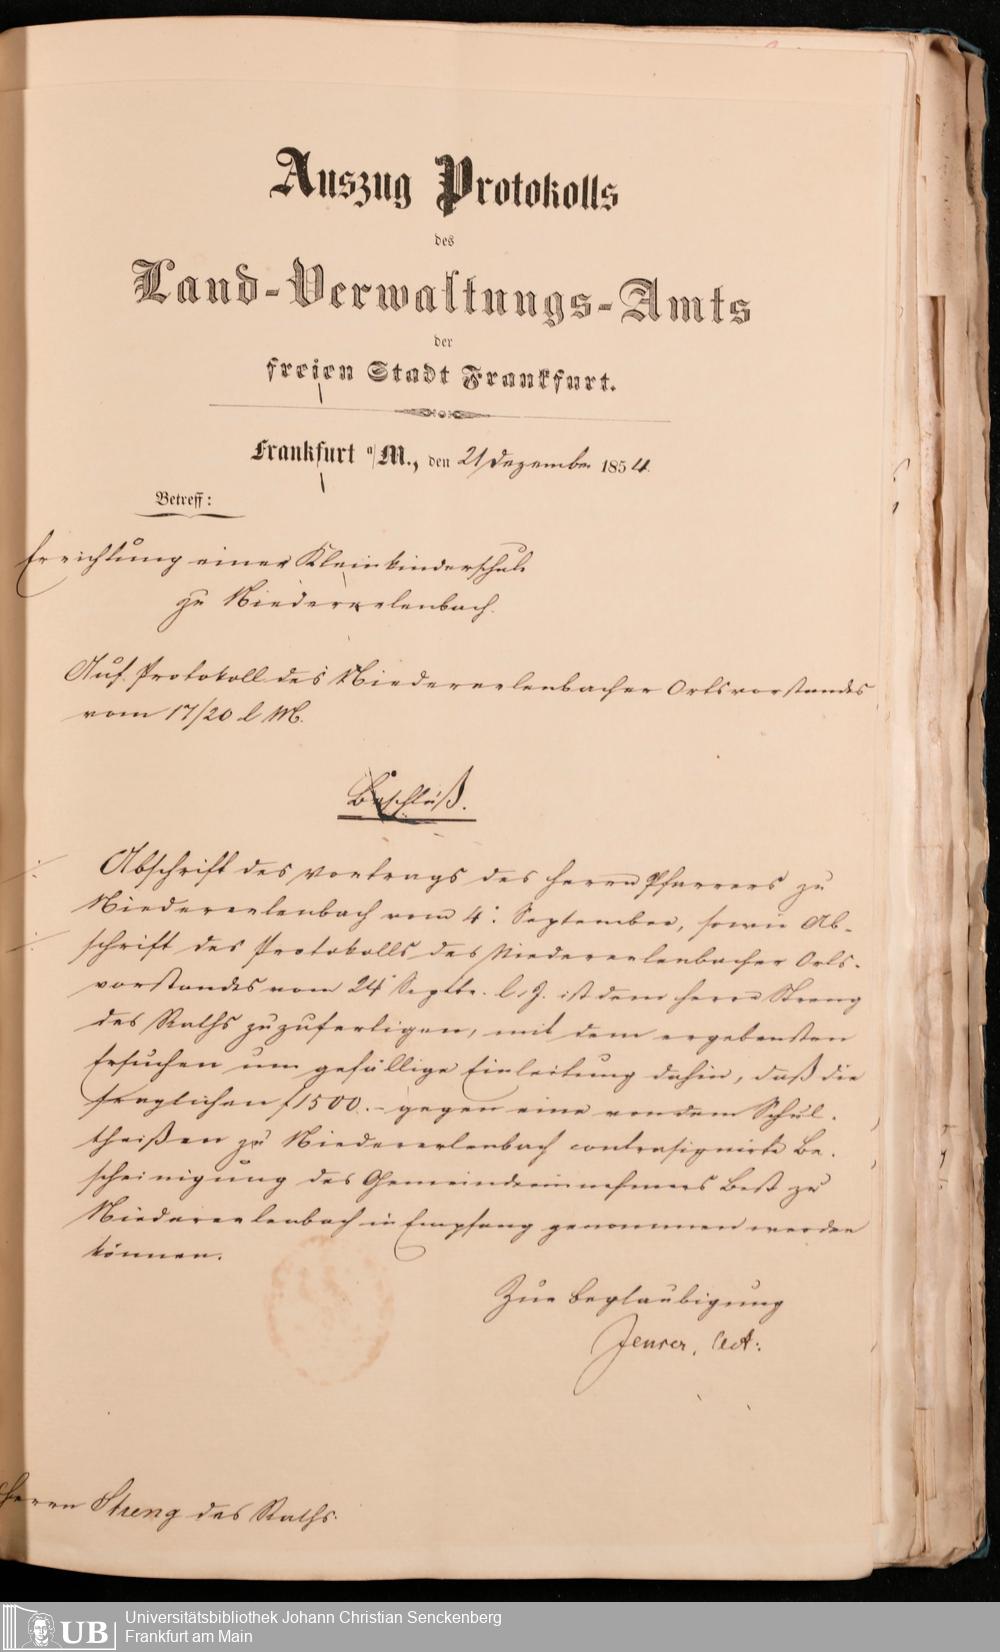 Auszug Protokolls
des
Land-Verwaltungs-Amts
der
freien Stadt Frankfurt.
Frankfurt a/M., den 21 Dezember 1854.
Betreff:
Errichtung einer Kleinkinderschule
zu Niedererlenbach.
Auf Protokoll des Niedererlenbacher Ortsvorstandes
vom 17/20 l. M.
Beschluß.
Abschrift des Vortrags des Herrn Pfarrers zu
Niedererlenbach vom 4. September, sowie Ab-
schrift des Protokolls des Niedererlenbacher Orts-
vorstandes vom 24 Septbr. l. J. ist dem Herrn Streng
des Raths zuzufertigen, mit dem ergebensten
Ersuchen um gefällige Einleitung dahin, daß die
fraglichen f 1500.– gegen eine von dem Schul-
theißen zu Niedererlenbach contrasignirte Be-
scheinigung des Gemeindeeinnehmers Best zu
Niedererlenbach in Empfang genommen werden
können.
Zur Beglaubigung
Act:
Herrn Streng des Raths.
UB
Universitätsbibliothek Johann Christian Senckenberg
Frankfurt am Main